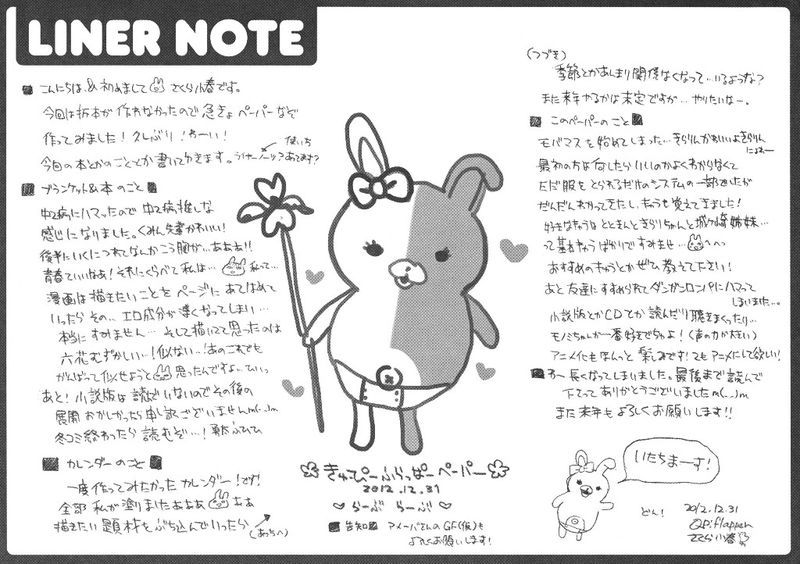 LINER NOTE
■ こんにちは、&初めまして さくら小春です。
今回は折本が作れなかったので急きょペーパーなぞ
作ってみました!久しぶり!わーい!
今回の本とかのこととか書いておきます。
使いち
■ ブランケット&本のこと ■
中2病にハマったので中2病推しな
感じになりました。くみん先輩かわいい!
後半にいくにつれてなんかこう胸が…ああぁ!!
青春ていいなぁ!それにくらべて私は… 私って…
漫画は描きたいことをページにあてはめて
いったらその… エロ成分が薄くなってしまい…
本当にすみません… そして描いてて思ったのは
六花むずかしい!似ない…!あのこれでも
がんばって似せようと 思ったんですよ…
あと!小説版は読んでいないのでその後の
展開おかしかったら申し訳ございませんm(_ _)m
冬コミ終わったら読むぞ…!
■ カレンダーのこと ■
一度作ってみたかったカレンダー!です!
全部私が塗りましたあああ ああ
描きたい題材をぶち込んでいったら
(あっちへ)
(つづき)
季節とかあんまり関係なくなって…いるような?
また来年やるかは未定ですが…やりたいなー。
■ このペーパーのこと ■
モバマスを始めてしまった…きらりんかわいいよきらりん
にょわー
最初の方は何したらいいのかよくわからなくて
ただ服をとられるだけのシステムの一部でしたが
だんだんわかってきたし、キャラも覚えてきました!
好きなキャラはとときんときらりちゃんと城ヶ崎姉妹…
って基本キャラばかりですみませ… へへ
おすすめのキャラとかぜひ教えて下さい!
あと友達にすすめられてダンガンロンパにハマって
しまいました…。
小説版とかCDとか読んだり聴きまくったり…
モノミちゃんが一番好きでちゅよ!(声の力が大きい)
アニメ化もほんっと楽しみです!2もアニメにして欲しい!
■ う〜長くなってしまいました、最後まで読んで
下さってありがとうございましたm(_ _)m
また来年もよろしくお願いします!!
きゅーぴーふらっぱーペーパー
2012.12.31
らーぶ らーぶ
■ 告知 ■ アメーバさんのGF(仮)も
よろしくお願いします!
いたちまーす!
どん!
2012.12.31
QP:flapper
さくら小春